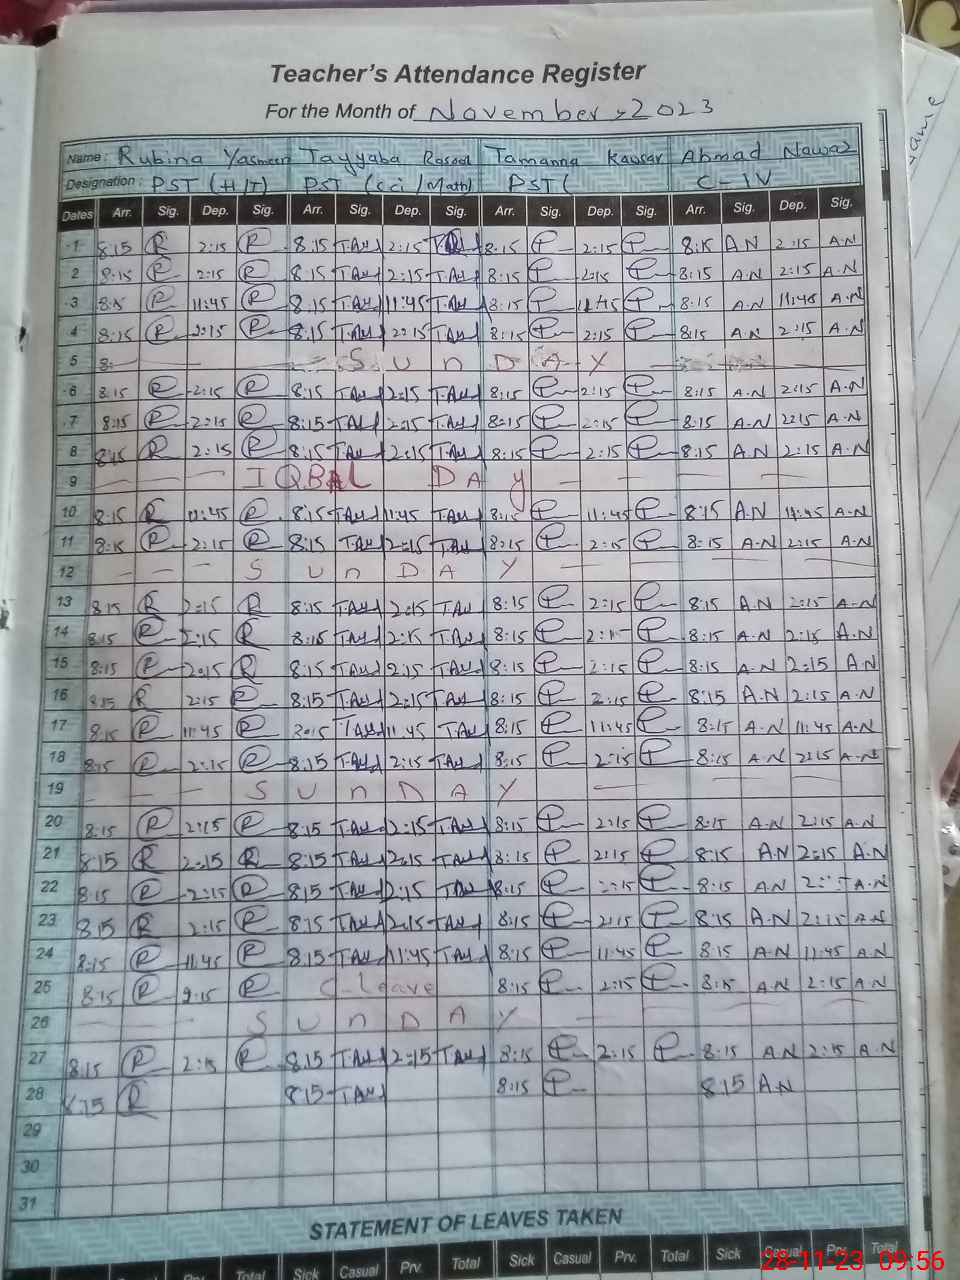 Teacher's Attendance Register
For the Month of November, 2023
Name: Rubina Yasmeen Tayyaba Rasool Tamanna Kausar Ahmad Nawaz
Designation: PST (H/T) PST (Sci/Math) PST ( C-IV
Dates Arr. Sig. Dep. Sig. Arr. Sig. Dep. Sig. Arr. Sig. Dep. Sig. Arr. Sig. Dep. Sig.
1 8:15 R 2:15 R 8:15 2:15 8:15 2:15 8:15 A.N 2:15 A.N
2 8:15 R 2:15 R 8:15 2:15 8:15 2:15 8:15 A.N 2:15 A.N
3 8:15 R 11:45 R 8:15 11:45 8:15 11:45 8:15 A.N 11:45 A.N
4 8:15 R 2:15 R 8:15 2:15 8:15 2:15 8:15 A.N 2:15 A.N
5 8: SUnDAY
6 8:15 R 2:15 R 8:15 2:15 8:15 2:15 8:15 A.N 2:15 A.N
7 8:15 R 2:15 R 8:15 2:15 8:15 2:15 8:15 A.N 2:15 A.N
8 8:15 R 2:15 R 8:15 2:15 8:15 2:15 8:15 A.N 2:15 A.N
9 IQBAL DAy
10 8:15 R 11:45 R 8:15 11:45 8:15 11:45 8:15 A.N 11:45 A.N
11 8:15 R 2:15 R 8:15 2:15 8:15 2:15 8:15 A.N 2:15 A.N
12 SUnDAY
13 8:15 R 2:15 R 8:15 2:15 8:15 2:15 8:15 A.N 2:15 A.N
14 8:15 R 2:15 R 8:15 2:15 8:15 8:15 A.N 2:15 A.N
15 8:15 R 2:15 R 8:15 2:15 8:15 2:15 8:15 A.N 2:15 A.N
16 8:15 R 2:15 R 8:15 2:15 8:15 2:15 8:15 A.N 2:15 A.N
17 8:15 R 11:45 R 11:45 8:15 11:45 8:15 A.N 11:45 A.N
18 8:15 R 2:15 R 8:15 2:15 8:15 2:15 8:15 A.N 2:15 A.N
19 SUnDAY
20 8:15 R 2:15 R 8:15 2:15 8:15 2:15 8:15 A.N 2:15 A.N
21 8:15 R 2:15 R 8:15 2:15 8:15 2:15 8:15 A.N 2:15 A.N
22 8:15 R 2:15 R 8:15 2:15 8:15 8:15 A.N A.N
23 8:15 R 2:15 R 8:15 2:15 8:15 2:15 8:15 A.N 2:15 A.N
24 8:15 R 11:45 R 8:15 11:45 8:15 11:45 8:15 A.N 11:45 A.N
25 8:15 R 2:15 R C-Leave 8:15 2:15 8:15 A.N 2:15 A.N
26 SUnDAY
27 8:15 R 2:15 R 8:15 2:15 8:15 2:15 8:15 A.N 2:15 A.N
28 8:15 R 8:15 8:15 8:15 A.N
29
30
31
STATEMENT OF LEAVES TAKEN
Prv. Total Sick Casual Prv. Total Sick Casual Prv. Total Sick Casual Prv. Total
28-11-23 09:56